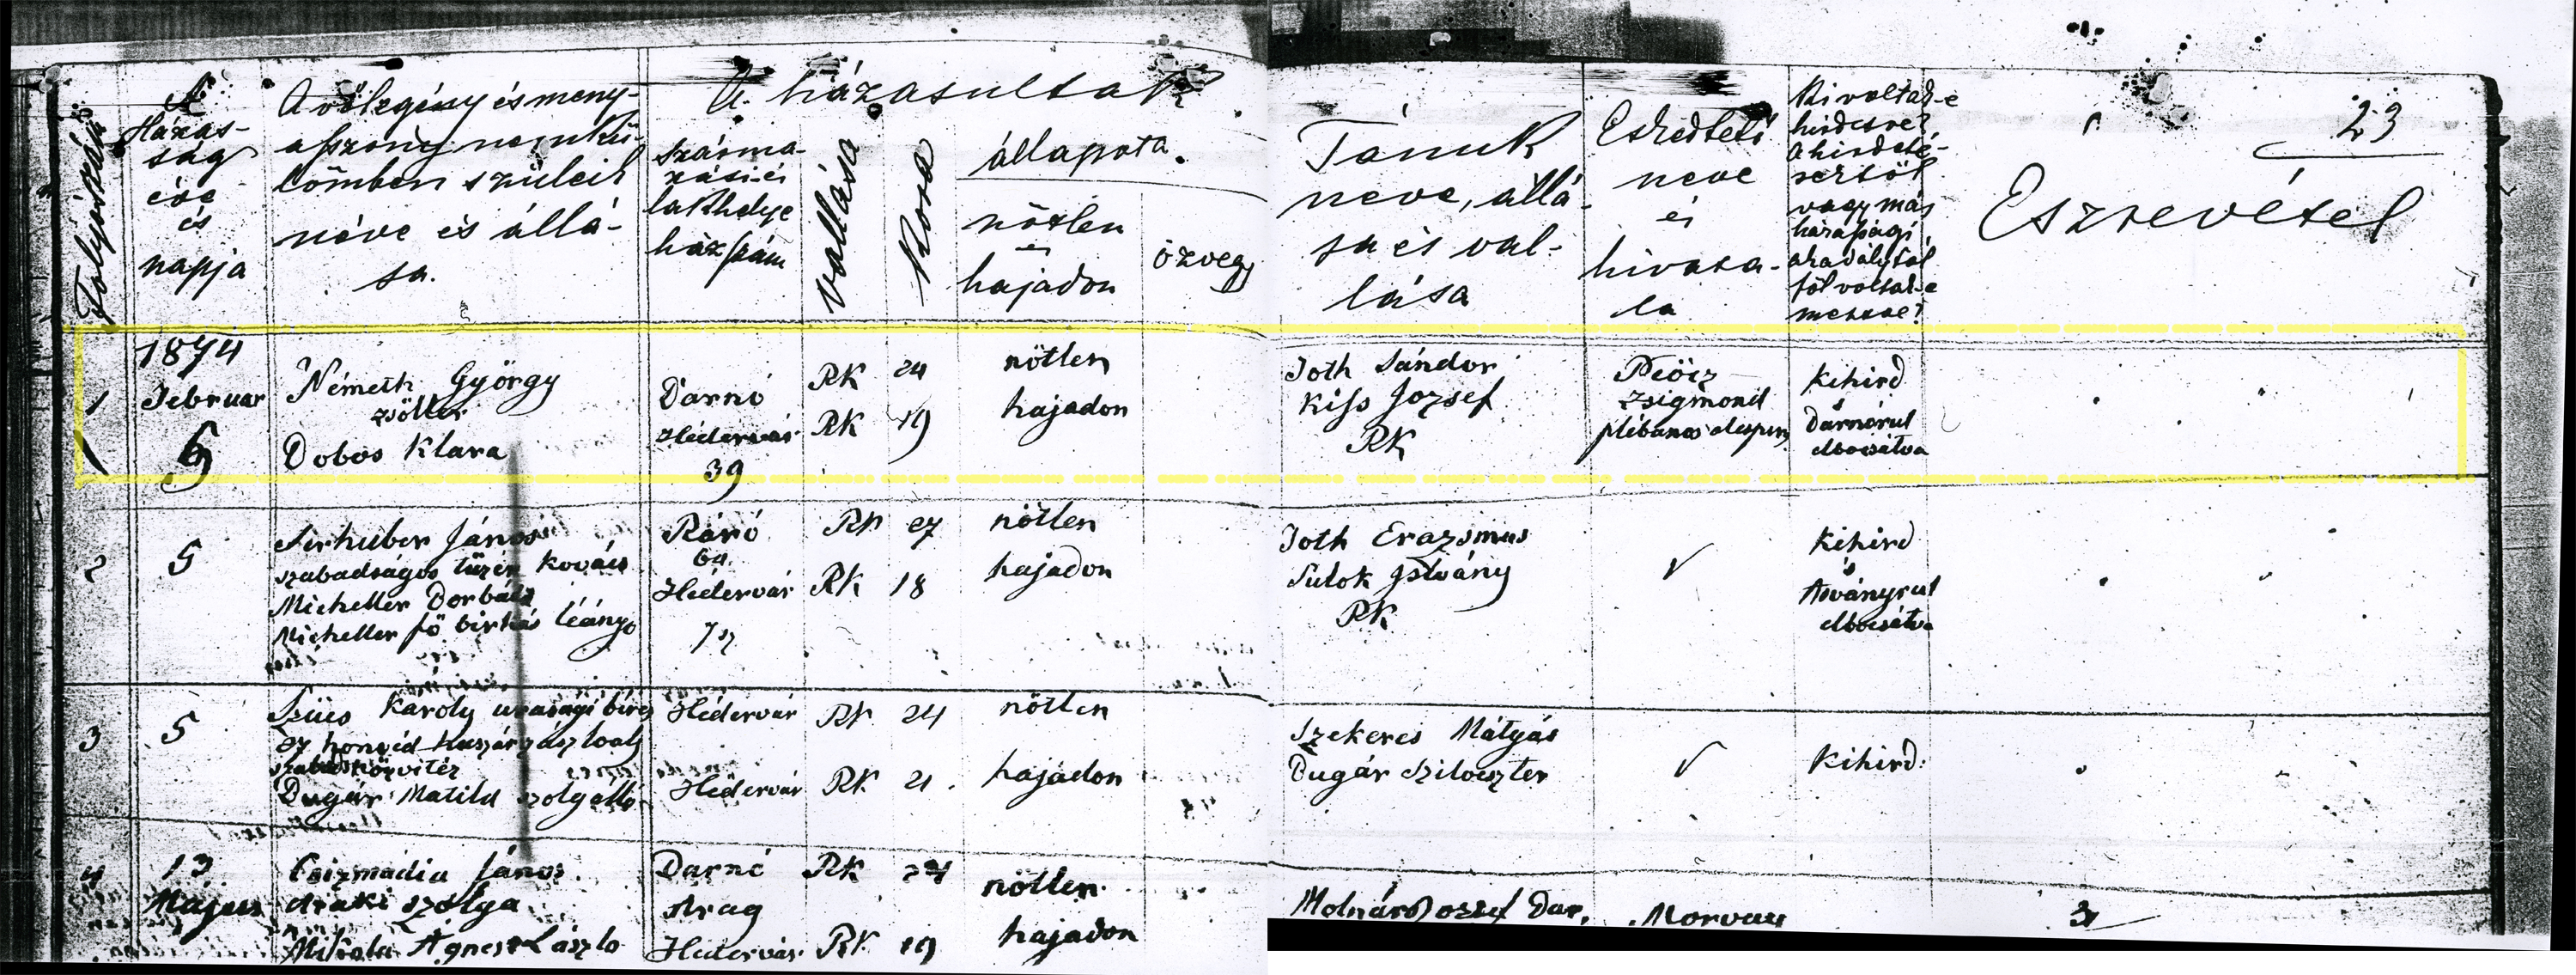 Folyószám
A
Házas-
ság
éve
és
napja
A vőlegény és meny-
aszony nemkü-
lömben szüleik
neve és állá-
sa.
A házasultak
szárma-
zási és
lakhelye
házszám
vallása
Kora
állapota.
nőtlen
és
hajadon
özvegy
Tanuk
neve, állá-
sa és val-
lása
Eskedtető
neve
és
hivata-
la
Ki voltak-e
hirdetve?
vagy más
mentve?
23
Eszrevétel
1
1874
Februar
6
Németh György
zsöller
Dobos Klara
Darnó
Hédervár
39
RK 24
RK 19
nötlen
hajadon
Toth Sándor
Kiss Jozsef
RK
Zsigmond
plébanos
Kihird
s
Darnórul
elbocsátva
2
5
János
szabadságos tüzér kovács
Micheller Borbála
Micheller fö birkás léánya
Ráró
Hédervár
RK 27
RK 18
nötlen
hajadon
Toth Erazsmus
Sulok Istvány
RK
Kihird
s
Asványrul
elbocsátva
3
5
Szücs Károly urasagi béres
honvéd Huszár
Dugár Matild szolgálló
Hédervár
Hédervár
RK 24
RK 21
nötlen
hajadon
Szekeres Mátyás
Dugár Szilveszter
Kihird:
4
13
Május
Csizmadia János
araki szolga
Agnes László
Darnó
Arag
Hedervár
RK 24
RK 19
nötlen
hajadon
Molnár Jozsef Dar.
Morvay
3